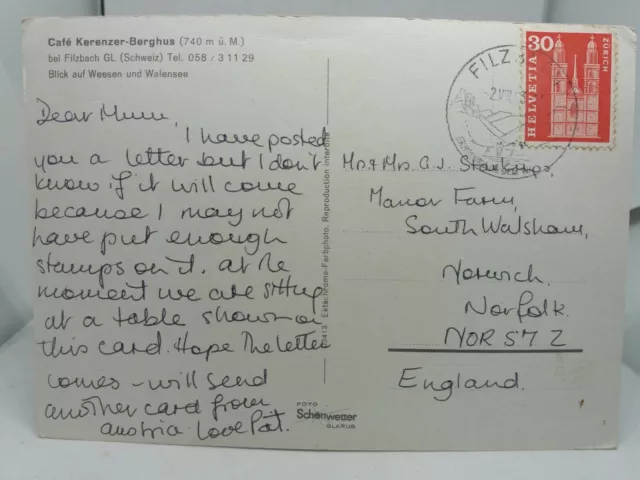 Café Kerenzer-Berghus (740 m ü. M.)
bei Filzbach GL (Schweiz) Tel. 058 / 3 11 29
Blick auf Weesen und Walensee
Dear Mum,
I have posted
you a letter but I don't
know if it will come
because I may not
have put enough
stamps on it. At the
moment we are sitting
at a table shown on
this card. Hope the letter
comes - will send
another card from
Austria. Love Pat.
Ektachrome-Farbphoto. Reproduction interdite
FOTO
Schönwetter
GLARUS
FILZ
HELVETIA
30
ZÜRICH
Mr & Mrs. C. J.
Manor Farm,
South Walsham,
Norwich.
Norfolk.
NOR 57 Z
England.